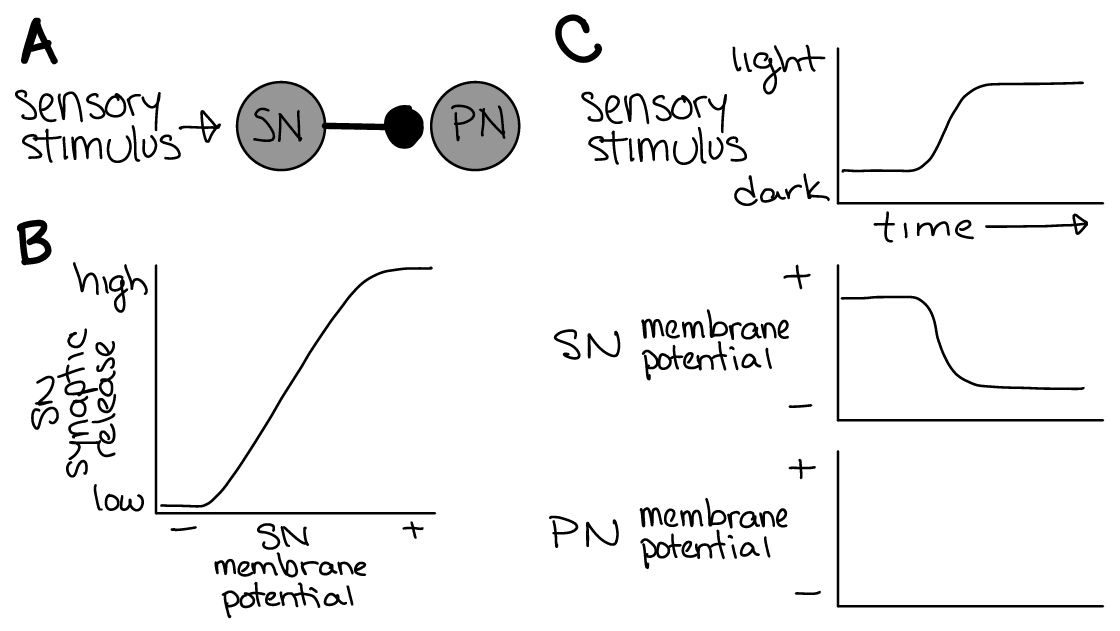 A
sensory
stimulus
SN
PN
B
high
SN
synaptic
release
low
−
SN
+
membrane
potential
C
sensory
stimulus
light
dark
time
SN membrane
potential
+
−
PN membrane
potential
+
−